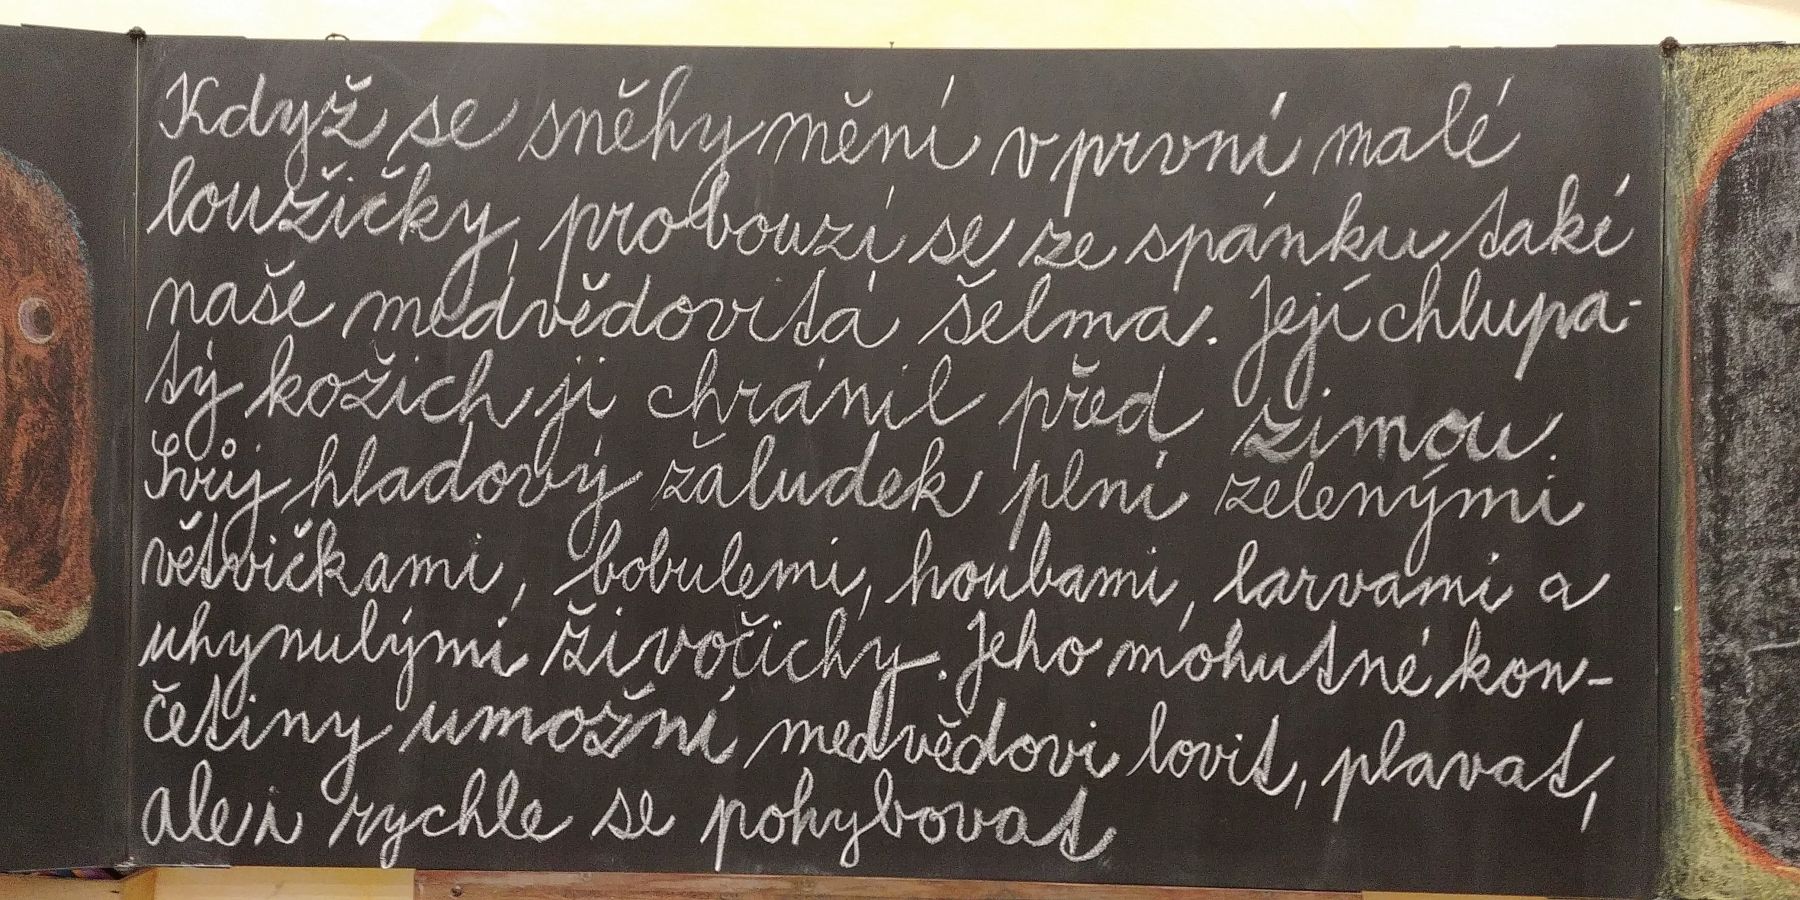 Když se sněhy mění v první malé
loužičky, probouzí se ze spánku také
naše medvědovitá šelma. Její chlupa-
tý kožich ji chránil před zimou.
Svůj hladový žaludek plní zelenými
větvičkami, bobulemi, houbami, larvami a
uhynulými živočichy. Jeho mohutné kon-
četiny umožní medvědovi lovit, plavat,
ale i rychle se pohybovat